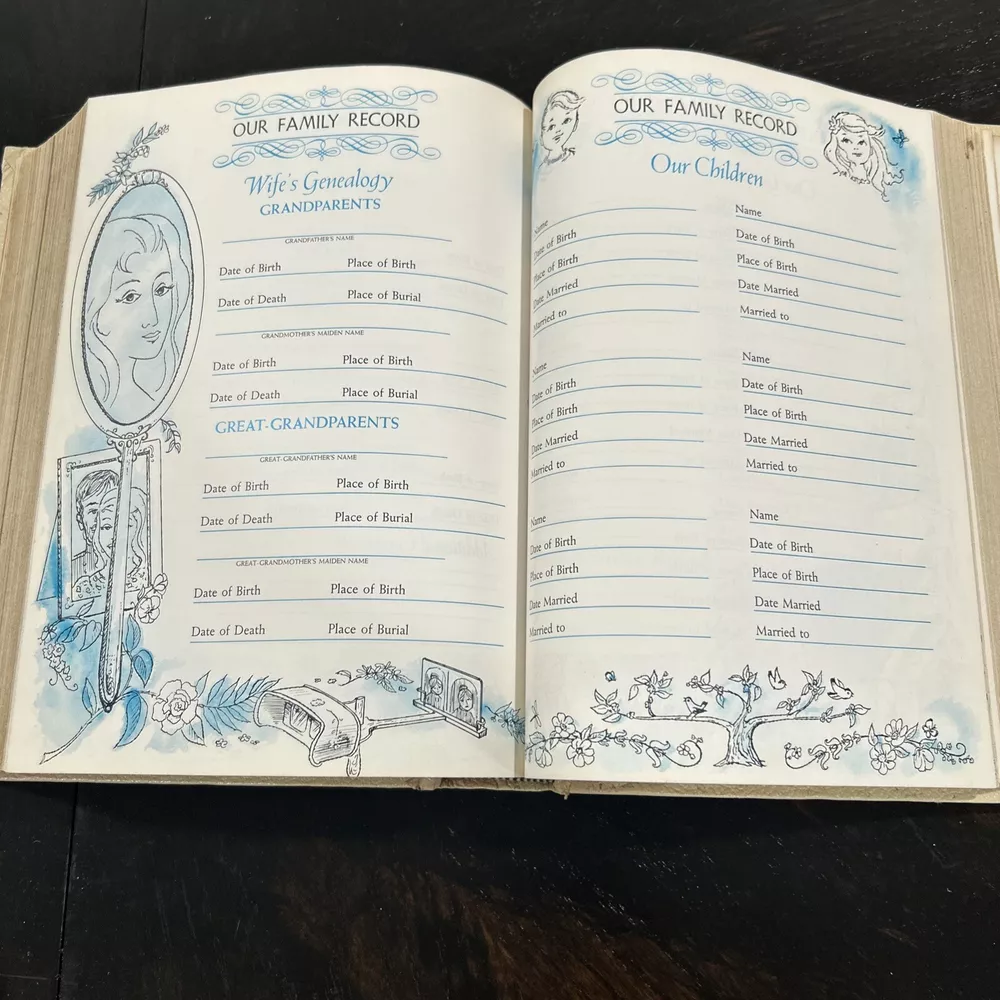 OUR FAMILY RECORD
Wife's Genealogy
GRANDPARENTS
GRANDFATHER'S NAME
Date of Birth Place of Birth
Date of Death Place of Burial
GRANDMOTHER'S MAIDEN NAME
Date of Birth Place of Birth
Date of Death Place of Burial
GREAT-GRANDPARENTS
GREAT-GRANDFATHER'S NAME
Date of Birth Place of Birth
Date of Death Place of Burial
GREAT-GRANDMOTHER'S MAIDEN NAME
Date of Birth Place of Birth
Date of Death Place of Burial
OUR FAMILY RECORD
Our Children
Name
Date of Birth
Place of Birth
Date Married
Married to
Name
Date of Birth
Place of Birth
Date Married
Married to
Name
Date of Birth
Place of Birth
Date Married
Married to
Name
Date of Birth
Place of Birth
Date Married
Married to
Name
Date of Birth
Place of Birth
Date Married
Married to
Name
Date of Birth
Place of Birth
Date Married
Married to